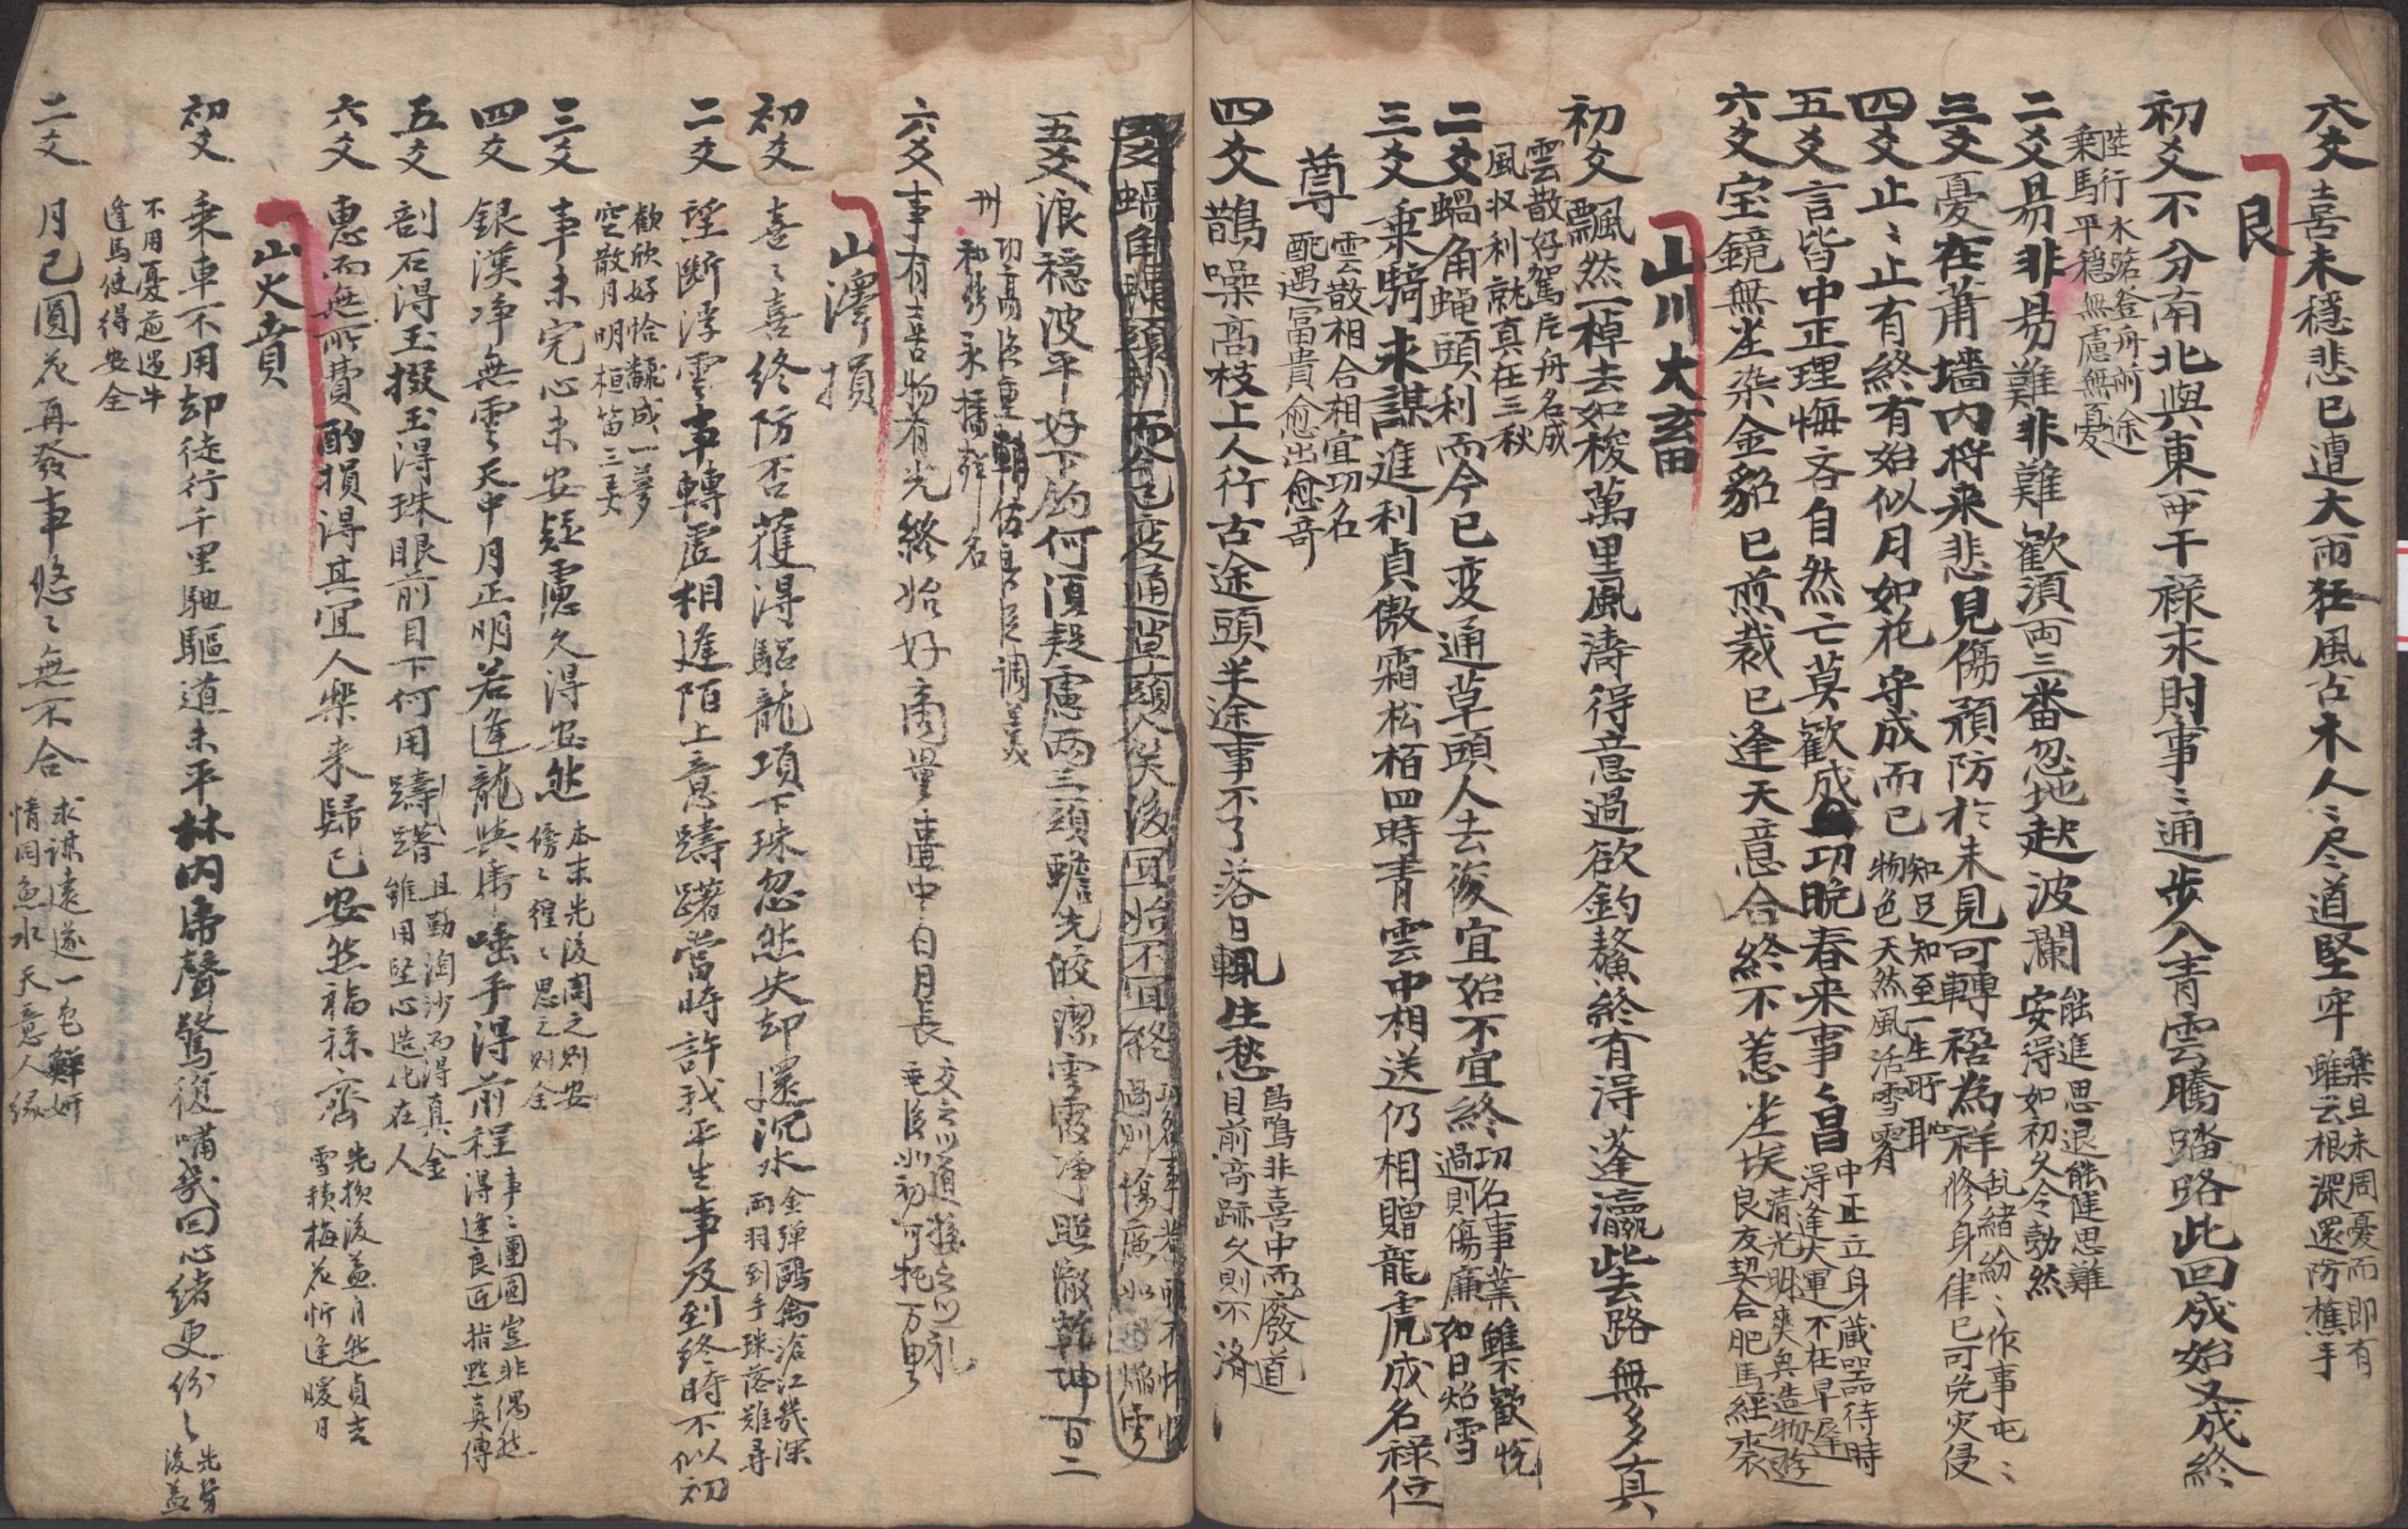 六爻喜未穩悲已遭大雨狂風古木人〻尽道堅牢 樂且未周憂而即有
雖云根深還防樵手
艮
初爻不分南北與東西干祿求財事〻通步入青雲騰踏路此回成始又成終
陸行水路登舟前途
乗馬平穏無慮無憂
二爻易非易難非難歡須両三番忽地起波瀾 能進思退能進思難
安得如初久令勃然
三爻憂在蕭墻内将来悲見傷預防於未見可轉禍為祥 乱緒紛〻作事屯〻
修身律已可免灾侵
四爻止〻止有終有始似月如花守成而已 知足知至一生所耻
物色天然風活雪宵
五爻言皆中正理悔吝自然亡莫歡成功晩春来事〻昌 中正立身藏器待時
得逢大運不在早遲
六爻宝鏡無尘染金貂已煎裁已逢天意合終不惹尘埃 清光明爽與造物遊
良友契合肥馬經裘
山川大畜
初爻飄然一棹去如梭萬里風濤得意過欲釣鰲魚終有得蓬瀛此去路無多真
雲散好駕片舟名成
風収利就真在三秋
二爻蝸角蝇頭利而今已变通草頭人去後宜始不宜終 功名事業雖不歡悦
過則傷廉如日焰雪
三爻乗騎来謀進利貞傲霜松栢四時青雲中相送仍相贈龍虎成名禄位
尊 雲散相合相宜功名
配遇冨貴愈出愈奇
四爻鵲噪高枝上人行古途頭半途事不了落日輒生愁 鳥鳴非喜中而廢道
目前奇跡久則不済
蝸角蝇頭利而今已变通草頭人矣後宜始不宜終
五爻浪穏波平好下釣何須疑慮两三頭蟾光皎潔雲霞净照徹乾坤百二
州 功高臣重輔佐良臣調羹
永播群名
六爻事有喜物有光終始好商量壷中日月長 交之以道接之以礼
可托万里
山澤損
初爻喜〻喜終防否獲得驪龍項下珠忽然失却還沉水 金弾鷗禽滄江幾深
両羽到手珠落难尋
二爻望断浮雲事轉虚相逢陌上意躊躇當時許我平生事及到終時不似初
歡欣好恰翻成一夢
空散月明桓笛三弄
三爻事未完心未安疑慮久得安然 本末先後周之则安
傍〻徨〻思之则全
四爻銀漢净無雲天中月正明若逢龍與虎唾手得前程 事〻團圓豈非偶然
得逢良匠指點真傳
五爻剖石得玉掇玉得珠眼前目下何用躊躇 且勤淘沙而得真金
雖用堅心造化在人
六爻惠而無所費酌損得其宜人樂来歸已安然福禄齊 先損後益自然貞吉
雪積梅花忻逢暖日
山火賁
初爻乗車不用却徒行千里馳驅道未平林内虎聲驚復嘯幾回心緒更紛〻 先勞
後益
不用憂煎遇牛
逢馬使得安全
二爻月已圓花再發事悠〻無不合 求謀遠遂一色鮮妍
情同魚水天意人縁